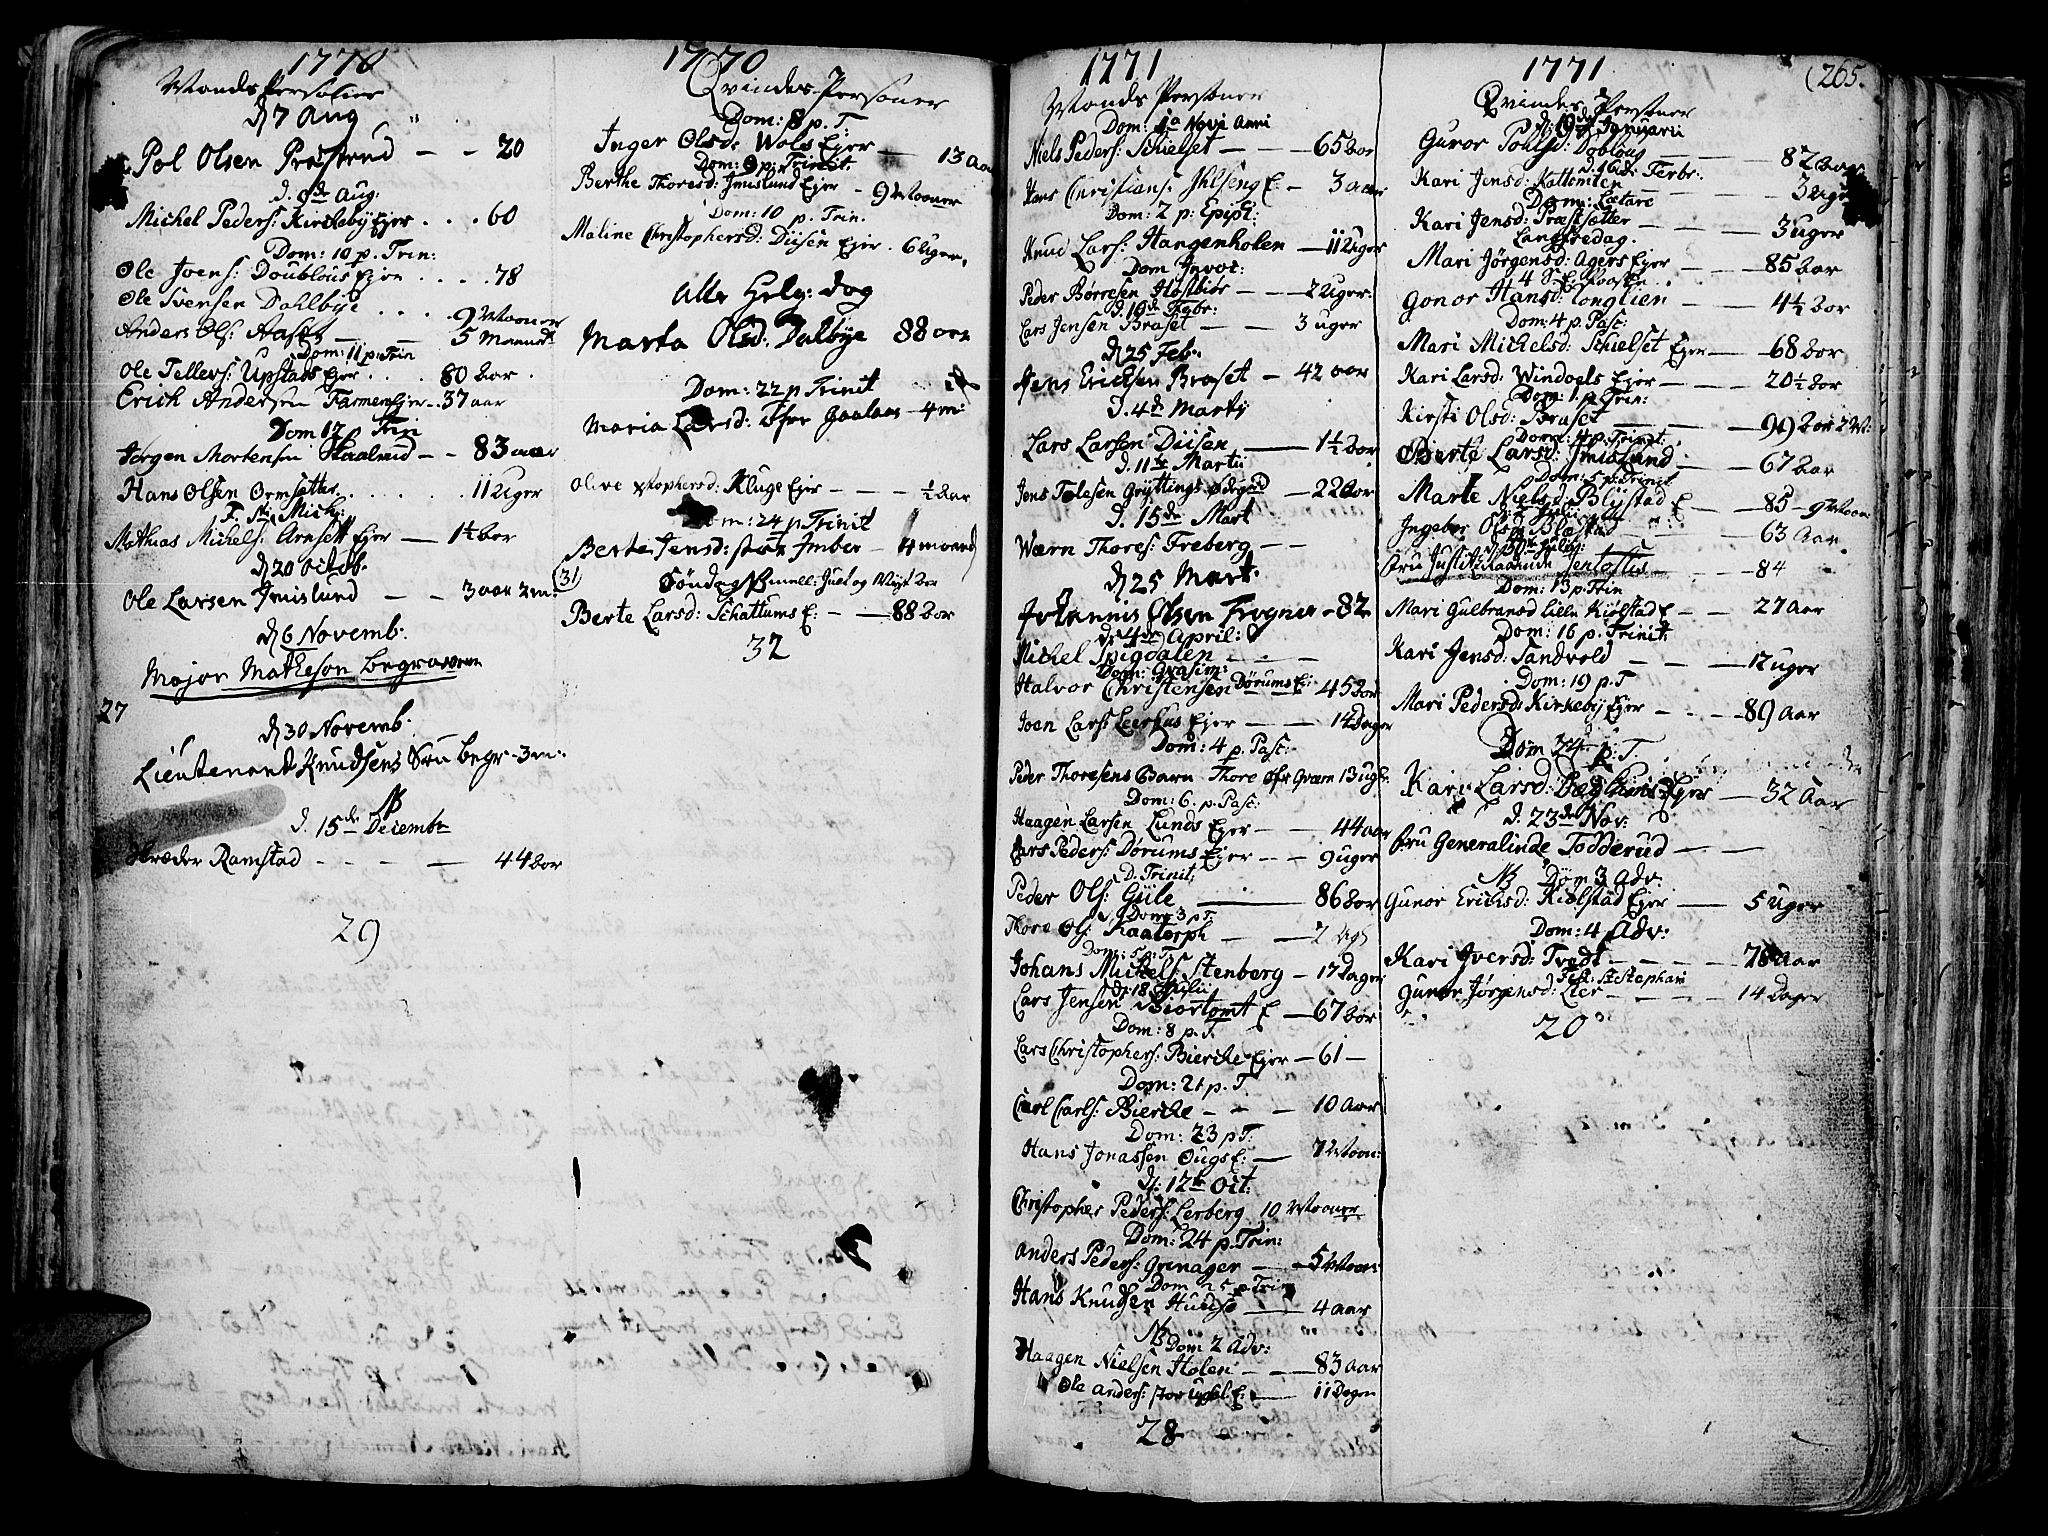 1770
Mands Personer
d 7 Aug
Pol Olsen Præstrud — - 20
d. 9de Aug:
Michel Peders: Kirkebÿ Ejer . . . 60
Dom: 10 p. Trin:
Ole Joens: Doublous Ejer . . . 78
Ole Svensen Dahlbÿe . . . 9 Maaner
Anders Ols: Aaset — — 5 Maaned
Dom: 11 p: Trin
Ole Tellers: Upstads Ejer . . . 80 Aar .
Erich Andersen Farmen Ejer . . 37 aar
Dom 17 Trin
Jørgen Mortensen Skaalrud — - 83 aar
Hans Olsen Ormsetter . . . . . 11 Uger
F. Sti Mich:
Mathias Michels: Arnset Ejer — 1½ Aar
d 20 Octob.
Ole Larsen Imislund — - 3 aar 2 m:
d 6 Novemb:
Major Matheson begraven
27
d 30 Novemb:
Lieutenant Knudsens Søn begr - 3 m:
NB
d. 15de Decembr
Skræder Ramstad - - - - — 44 Aar
29
1770
Qvindes-Personer
Dom: 8 p. T:
Inger Olsd: Wols Ejer — 13 Aar
Dom: 9 p: Trinit.
Berthe Thoresd: Imislund Ejer - 9 Maaner
Dom: 10 p. Trin.
Maline Christophersd: Diisen Ejer . 6 Uger.
Alle Helg: Dag
Marta Olsd: Dalbÿe 88 aar
Dom: 22 p Trinit
Maria Larsd: Øfre Gaalaas - 4 m:
Olive Xtophersd: Kluge Ejer - - - ½ Aar
Dom: 24 p Trinit
Berte Jensd: Imber - 4 maaned
(31)
Berte Larsd: Schattums E: - — 88 Aar
32
1771
Mands Personer
Dom: 1a Novi Anni
Niels Peders: Schielset - - - 65 Aar
Hans Christians: Ihlseng E: - 3 aar
Dom: 2 p: Epiph:
Knud Lars: Stangenholen — 11 Uger
Dom Invoc:
Peder Børresen Høstbiør - - - 2 Uger:
d. 19de Febr:
Lars Jensen Braset - - 3 uger
d 25 Feb.
Jens Ericksen Braset — 42 aar
d. 4de Martÿ
Lars Larsen Diisen — 1½ Aar
d. 11te Martii
Jens Tolesen Grÿttings Ødegrd - 22 Aar
d. 15de Mart
Wærn Thores: Freberg - -
d 25 Mart.
Johannis Olsen Frogner - 82
d. 4de April:
Michel Spigdalen - - -
Dom: Qvasim:
Halvor Christensen Dørums E: - 45 Aar
Joen Lars: Leerhus Ejer — - 14 Dager
Dom: 4 p. Pasc:
Peder Thoresens Barn Thore Øfr Qværn 13 ug:
Dom: 6. p. Pasc:
Haagen Larsen Lunds Ejer - - 44 aar
Lars Peders: Dørums Ejer - - 9 uger
D. Trinit:
Peder Ols: Gÿle — 86 Aar
Dom: 3 p T:
Thore Ols: Kaatorph — - 2
Dom: 5 p: T:
Johans Michels: Stenberg - 17 Dager
d. 18 Julii
Lars Jensen Biørtomt E - 67 Aar
Dom: 8 p. T.
Lars Christophers: Biercke Ejer — 61 —
Dom: 21 p. T
Carl Carls: Biercke - - - 10 Aar
Dom: 23 p T:
Hans Jonassen Ougs E: — 7 Maan:
d. 12te Oct:
Christopher Peders: Lerberg 10 Maaner
Dom: 24 p. Trin:
Anders Peders: Grenager - - 5 Maan:
Dom 25 p. Trin
Hans Knudsen Huuse — 4 Aar
NB Dom 2 Adv:
Haagen Nielsen Holen - - - 83 aar
Ole Anders: E: — 11 Dager
28
1771
(265.
Qvindes Personer
d. 19de Januarii
Guror Pohlsd: Doblous — - - 82 Aar
d. 16de Febr:
Kari Jensd: Kattemten - - - 3 Uger
Dom: Lætare
Kari Jensd: Præstsætter - - - 3 uger
Langfredag.
Mari Jørgensd: Agers Ejer - - 85 Aar
4 S: E: Paaske
Gonor Hansd: Tonglien - - 4½ Aar
Dom: 4 p. Pasc:
Mari Michelsd: Schielset Ejer — 68 Aar
Kari Larsd: Windoels Ejer — - 20½ Aar
Dom: 1. p. Trin:
Kirsti Olsd: Braset — - - 99 Aar 2 M:
Dom: 4 p. Trinit:
Berte Larsd: Imislund - 67 Aar
Dom: 5 p: Trinit
Marte Nielsd: Blÿstad E - 85 - 9 Maan
Ingebor Olsd: Blæstad - - 63 Aar
Fru Justitzraadinde Jenloftus - - 84
Dom: 13 p. Trin
Mari Gulbransd Lille Kiølstad E - - 27 Aar
Dom: 16 p. Trinit:
Kari Jensd: Sandvold - - - 12 uger
Dom: 19 p. T
Mari Pedersd: Kirkebÿ Ejer - - - 89 aar
Dom 24 p. T.
Kari Larsd: Ejer - 32 Aar
d. 23de Nov:
Fru Generalinde Todderud - -
NB Dom 3 Adv:
Gunor Ericksd: Kiølstad Ejer — 5 Uger
Dom: 4 Adv:
Kari Iversd: Tvedt - - - - 78 Aar
Fest: St Stephani
Gunor Jørgensd: Lier - - - - 14 Dager
20